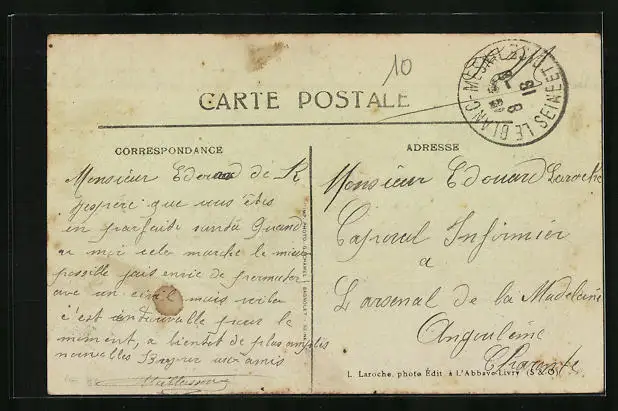 10
CARTE POSTALE
LE BLANC-MESNIL SEINE ET OISE
8 18
CORRESPONDANCE
Monsieur Edouard de R
j'espere que vous êtes
en parfaite santé Quand
a moi cela marche le mieux
possible jais envie de permuter
avec un civil mais
c'est introuvable pour le
moment, a bientot de plus amples
nouvelles Bonjour aux amis
ADRESSE
Monsieur Edouard Laroche
Caporal Infirmier
a
L'arsenal de la Madeleine
Angouleme
Charente
L. Laroche, photo Edit. à L'Abbaye-Livry (S & O)